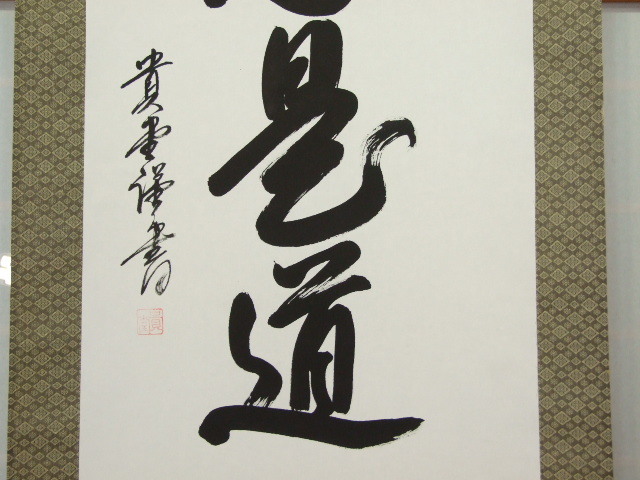 是道
貴堂謹書